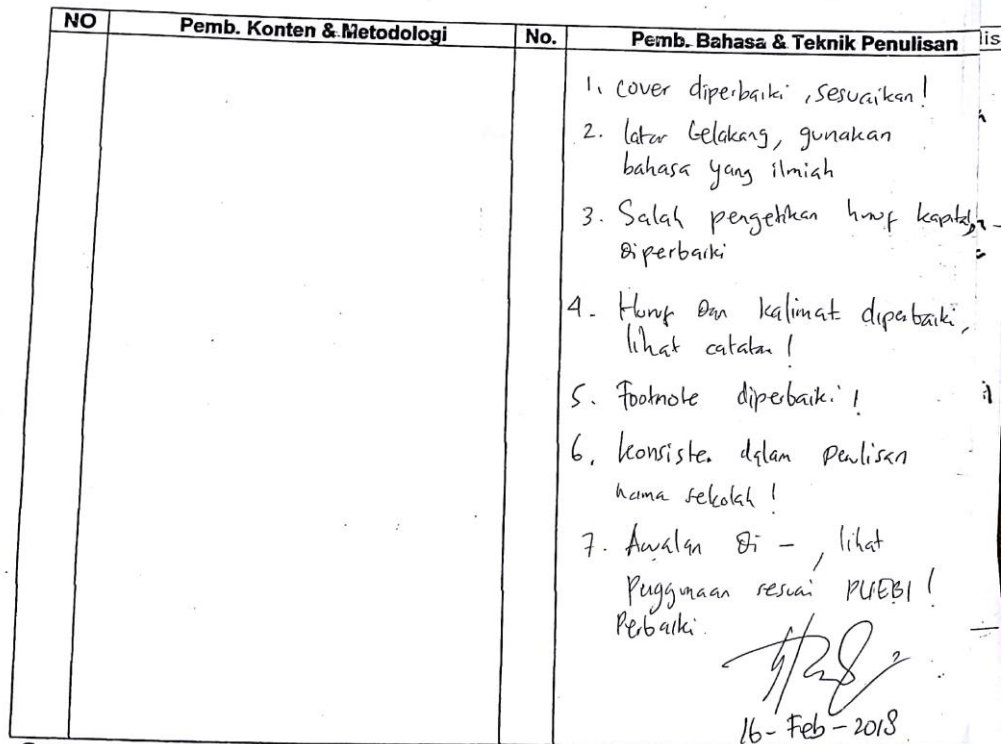 NO Pemb. Konten & Metodologi No. Pemb. Bahasa & Teknik Penulisan lis
1. cover diperbaiki, sesuaikan!
2. latar belakang, gunakan
bahasa yang ilmiah
3. Salah pengetikan huruf kapital,
diperbaiki
4. Huruf dan kalimat diperbaiki,
lihat catatan!
5. Footnote diperbaiki!
6. konsisten dalam penlisan
nama sekolah!
7. Awalan di-, lihat
Puggunaan sesuai PUEBI!
Perbaiki.
16-Feb-2018